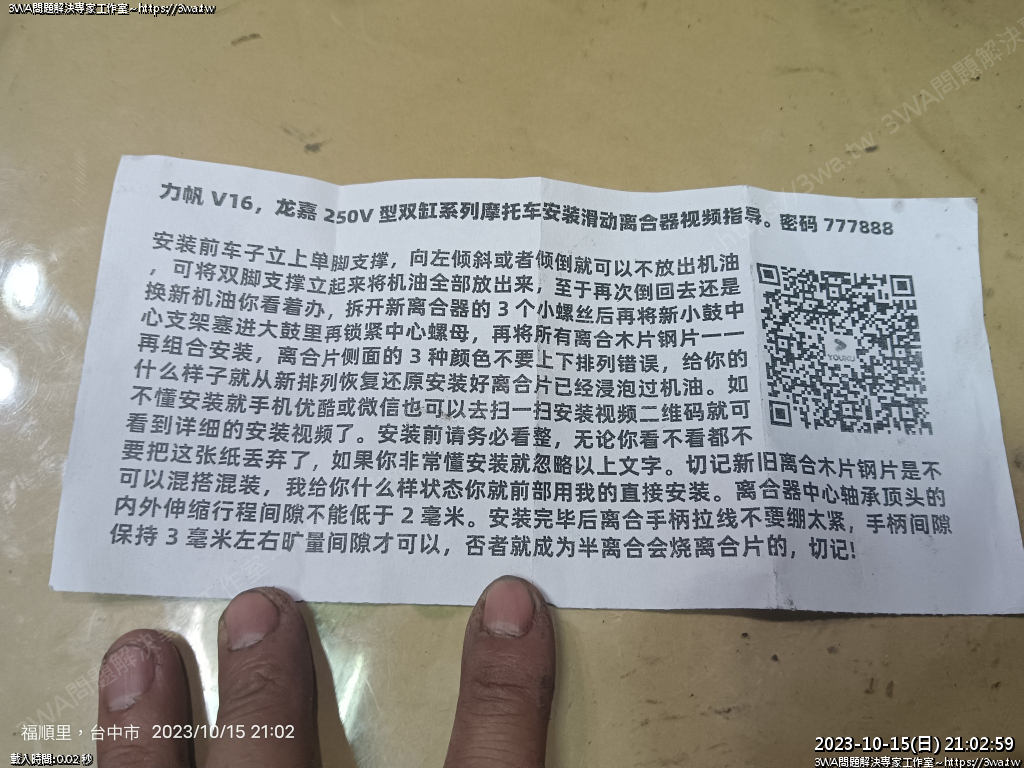 3WA問題解決專家工作室~https://3wa.tw
3WA問題解決專家工作室~https://3wa.tw
力帆 V16，龙嘉 250V 型双缸系列摩托车安装滑动离合器视频指导。密码 777888
安装前车子立上单脚支撑，向左倾斜或者倾倒就可以不放出机油
，可将双脚支撑立起来将机油全部放出来，至于再次倒回去还是
换新机油你看着办，拆开新离合器的 3 个小螺丝后再将新小鼓中
心支架塞进大鼓里再锁紧中心螺母，再将所有离合木片钢片一一
再组合安装，离合片侧面的 3 种颜色不要上下排列错误，给你的
什么样子就从新排列恢复还原安装好离合片已经浸泡过机油。如
不懂安装就手机优酷或微信也可以去扫一扫安装视频二维码就可
看到详细的安装视频了。安装前请务必看整，无论你看不看都不
要把这张纸丢弃了，如果你非常懂安装就忽略以上文字。切记新旧离合木片钢片是不
可以混搭混装，我给你什么样状态你就前部用我的直接安装。离合器中心轴承顶头的
内外伸缩行程间隙不能低于 2 毫米。安装完毕后离合手柄拉线不要绷太紧，手柄间隙
保持 3 毫米左右旷量间隙才可以，否者就成为半离合会烧离合片的，切记!
YOUKU
福順里，台中市 2023/10/15 21:02
載入時間:0.02 秒
2023-10-15(日) 21:02:59
3WA問題解決專家工作室~https://3wa.tw